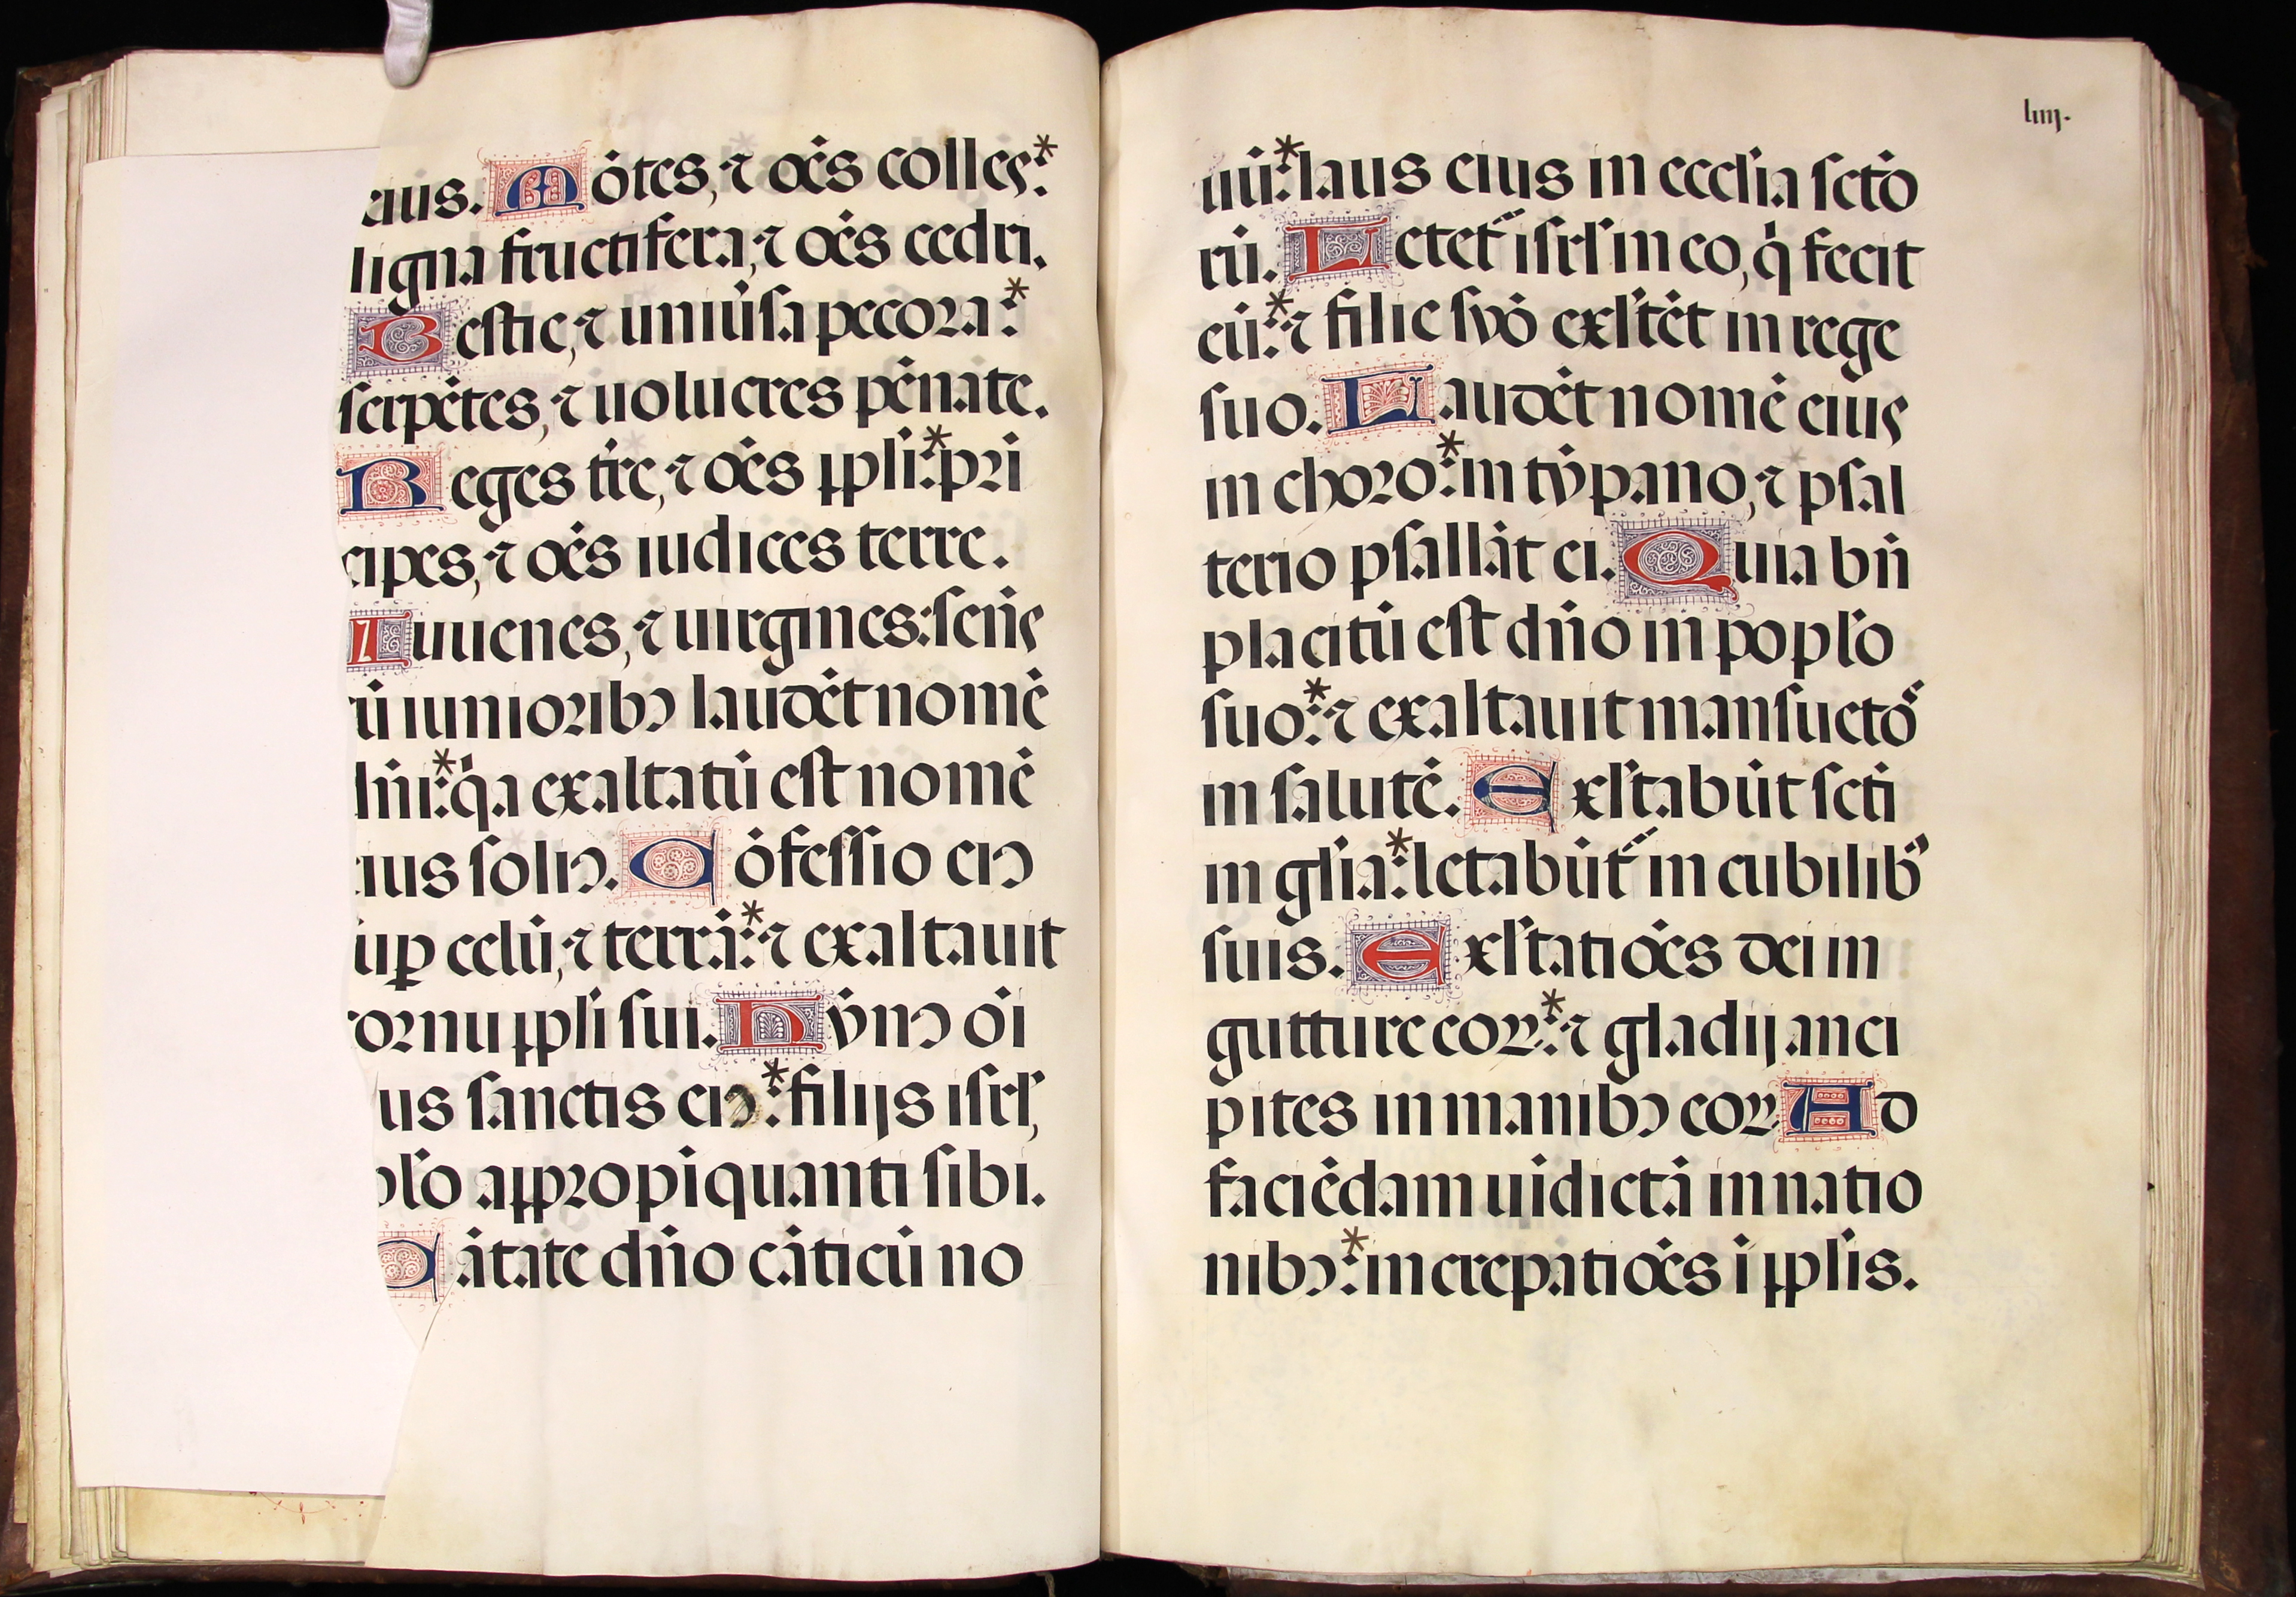 eius. Mōtes, ⁊ oēs colles*:
ligna fructifera, ⁊ oēs cedri.
Bestie, ⁊ uniūsa pecora*:
serpētes, ⁊ uolucres pēnate.
Reges tr̄e, ⁊ oēs ppl̄i*: pri
cipes, ⁊ oēs iudices terre.
Iuuenes, ⁊ uirgines: senēs
cū iunioribꝯ laudēt nomē
dn̄i*: q̇a exaltatū est nomē
eius soliꝯ. Cōfessio eiꝯ
sup̄ celū, ⁊ terrā*: ⁊ exaltauit
cornu ppl̄i sui. Hȳnꝯ oī
bus sanctis eiꝯ*: filijs isrl̄,
pl̄o appropīquanti sibi.
Cātate dn̄o cāticū no
liiij.
uū*: laus eius in eccl̄ia sctō
rū. Letet̄ isrl̄ in eo, q̇ fecit
eū*: ⁊ filie syō exl̄tēt in rege
suo. Laudēt nomē eius
in choro*: in tȳpano, ⁊ psal
terio psallāt ei. Quia bn̄
placitū est dn̄o in popl̄o
suo*: ⁊ exaltauit mansuetō
in salutē. Exl̄tabūt scti
in gl̄ia*: letabūt̄ in cubilib᾽
suis. Exl̄tatiōēs dei in
gutture eoꝝ*: ⁊ gladij anci
pites in manibꝯ eoꝝ. Ad
faciēdam uīdictā in natio
nibꝯ*: increpatiōēs ī ppl̄is.